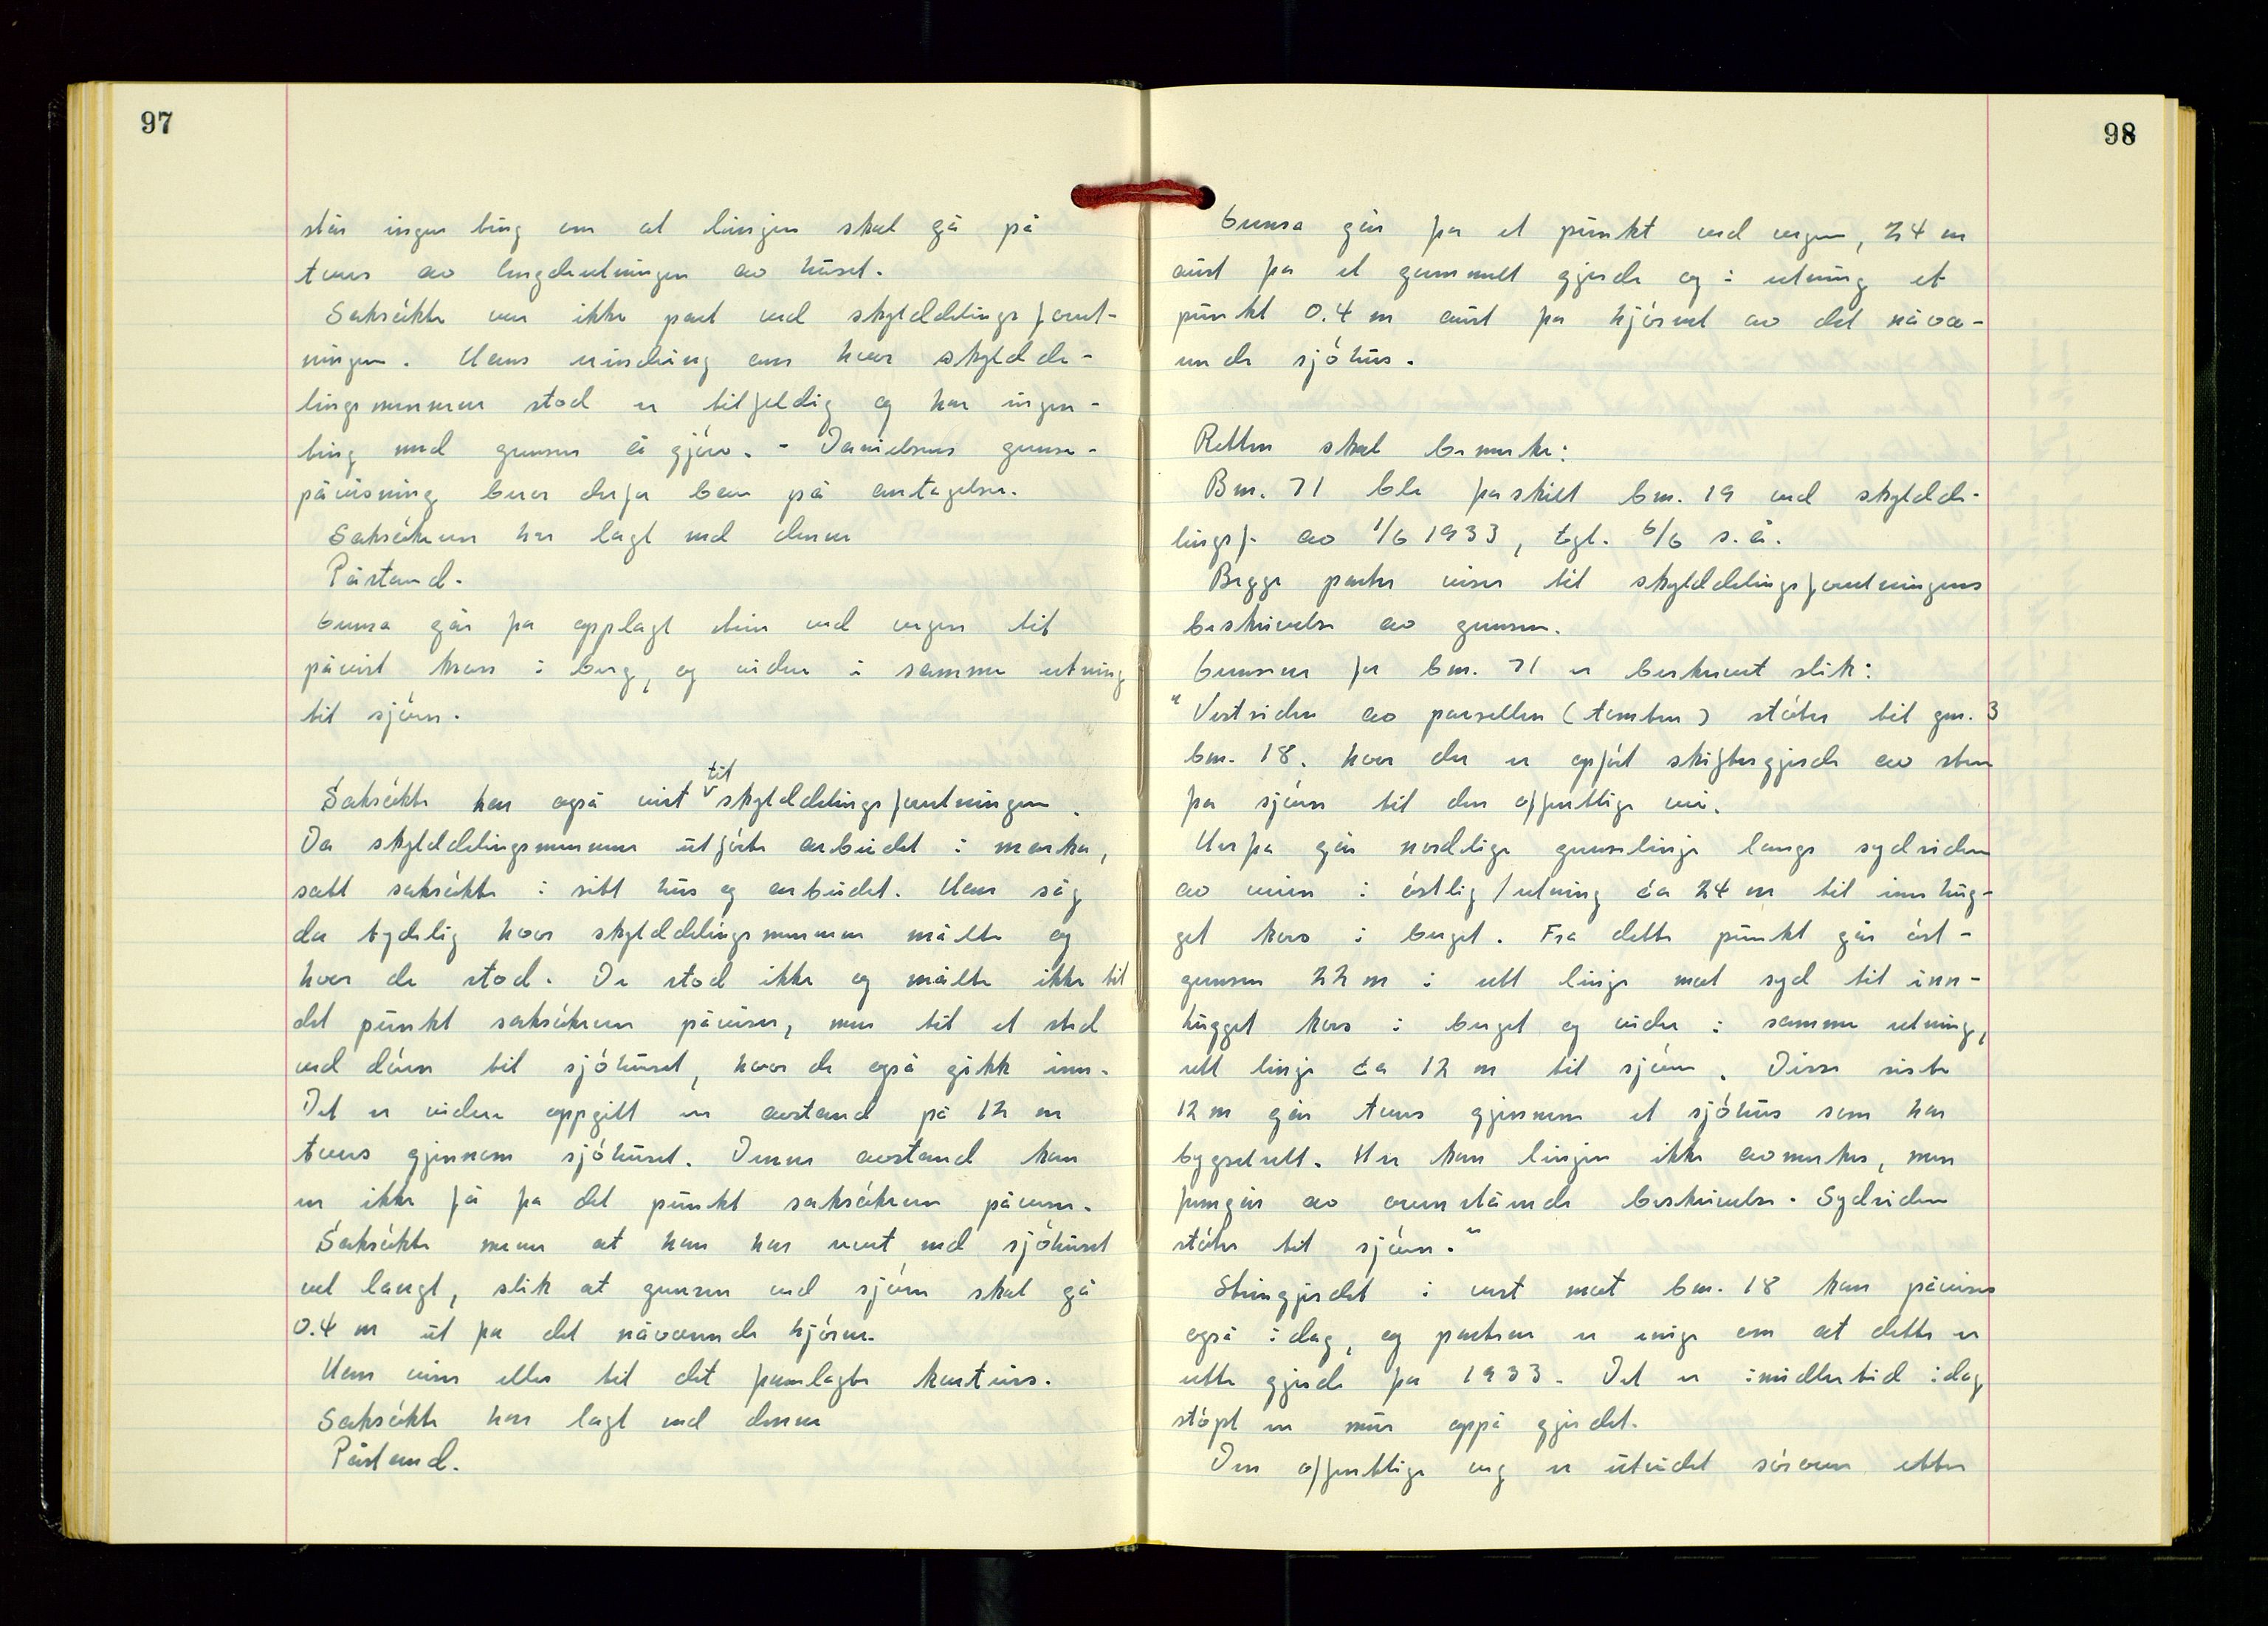 97
står ingen ting om at linjen skal gå på
tvers av lengderetningen av huset.
Saksøkte var ikke part ved skylddelingsforret-
ningen. Hans erindring om hvor skyldde-
lingsmennene stod er tilfeldig og har ingen-
ting med grensen å gjøre. - Danielsens grense-
påvisning beror derfor bare på antagelser.
Saksøkeren har lagt ned denne
Påstand.
Grensa går fra opplagt stein ved vegen til
påvist kors i berg, og videre i samme retning
til sjøen.
Saksøkte har også vist til skylddelingsforretningen.
Da skylddelingsmennene utførte arbeidet i marka,
satt saksøkte i sitt hus og arbeidet. Han såg
da tydelig hvor skylddelingsmennene målte og
hvor de stod. De stod ikke og målte ikke til
det punkt saksøkeren påviser, men til et sted
ved døren til sjøhuset, hvor de også gikk inn.
Det er videre oppgitt en avstand på 12 m
tvers gjennom sjøhuset. Denne avstand kan
en ikke få fra det punkt saksøkeren påviser.
Saksøkte mener at han har vert ved sjøhuset
vel langt, slik at grensen ved sjøen skal gå
0.4 m ut fra det nåværende hjørne.
Han viser ellers til det framlagte kartriss.
Saksøkte har lagt ned denne
Påstand.
98
Grensa går fra et punkt ved vegen, 24 m
aust fra et gammelt gjerde og i retning et
punkt 0.4 m aust fra hjørnet av det nåvæ-
rende sjøhus.
Retten skal bemerke:
Bnr. 71 ble fraskilt bnr. 19 ved skyldde-
lingsf. av 1/6 1933, tgl. 6/6 s.å.
Begge parter viser til skylddelingsforretningens
beskrivelse av grensen.
Grensene for bnr. 71 er beskrevet slik:
"Vestsiden av parsellen (tomten) støter til gnr. 3
bnr. 18, hvor der er oppført skiftesgjerde av sten
fra sjøen til den offentlige vei.
Herfra går nordlige grenselinje langs sydsiden
av veien i østlig retning ca 24 m til innhug-
get kors i berget. Fra dette punkt går øst-
grensen 22 m i rett linje mot syd til inn-
hugget kors i berget og videre i samme retning,
rett linje ca 12 m til sjøen. Disse siste
12 m går tvers gjennem et sjøhus som har
bygselrett. Her kan linjen ikke avmerkes, men
fremgår av ovenstående beskrivelse. Sydsiden
støter til sjøen."
Steingjerdet i vest mot bnr. 18 kan påvises
også idag, og partene er enige om at dette er
rette gjerde fra 1933. Det er imidlertid idag
støpt en mur oppå gjerdet.
Den offentlige veg er utvidet sørover etter